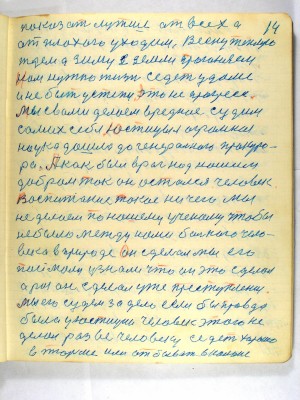 14
показат лужше от всех а
от плохого уходим, Весну теплую
ждем а зиму з земли прогоняем
Нам нужно жить седет удали
и не быт успехи Это не прогресс.
Мы свами делаем вредное судим
самих себя Юстицыя огромная
наука дошли до генерального пракуро-
ра. А как был враг над нашим
добром так он остался человек
Воспитание такое ни чего мы
не делаем по нашему ученому чтобы
небыло между нами такого чело-
века в природе Он сделал мы его
поймали узнали что он это сделал
а раз он сделал уже преступления.
мы его судим за дело если бы правда
была у юстицыи человек этого не
делал разве человеку седет хорошо
в тюрме или отбыват в канаве